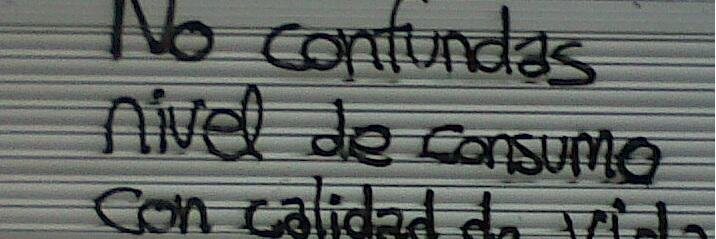 No confundas
nivel de consumo
con calidad de vida